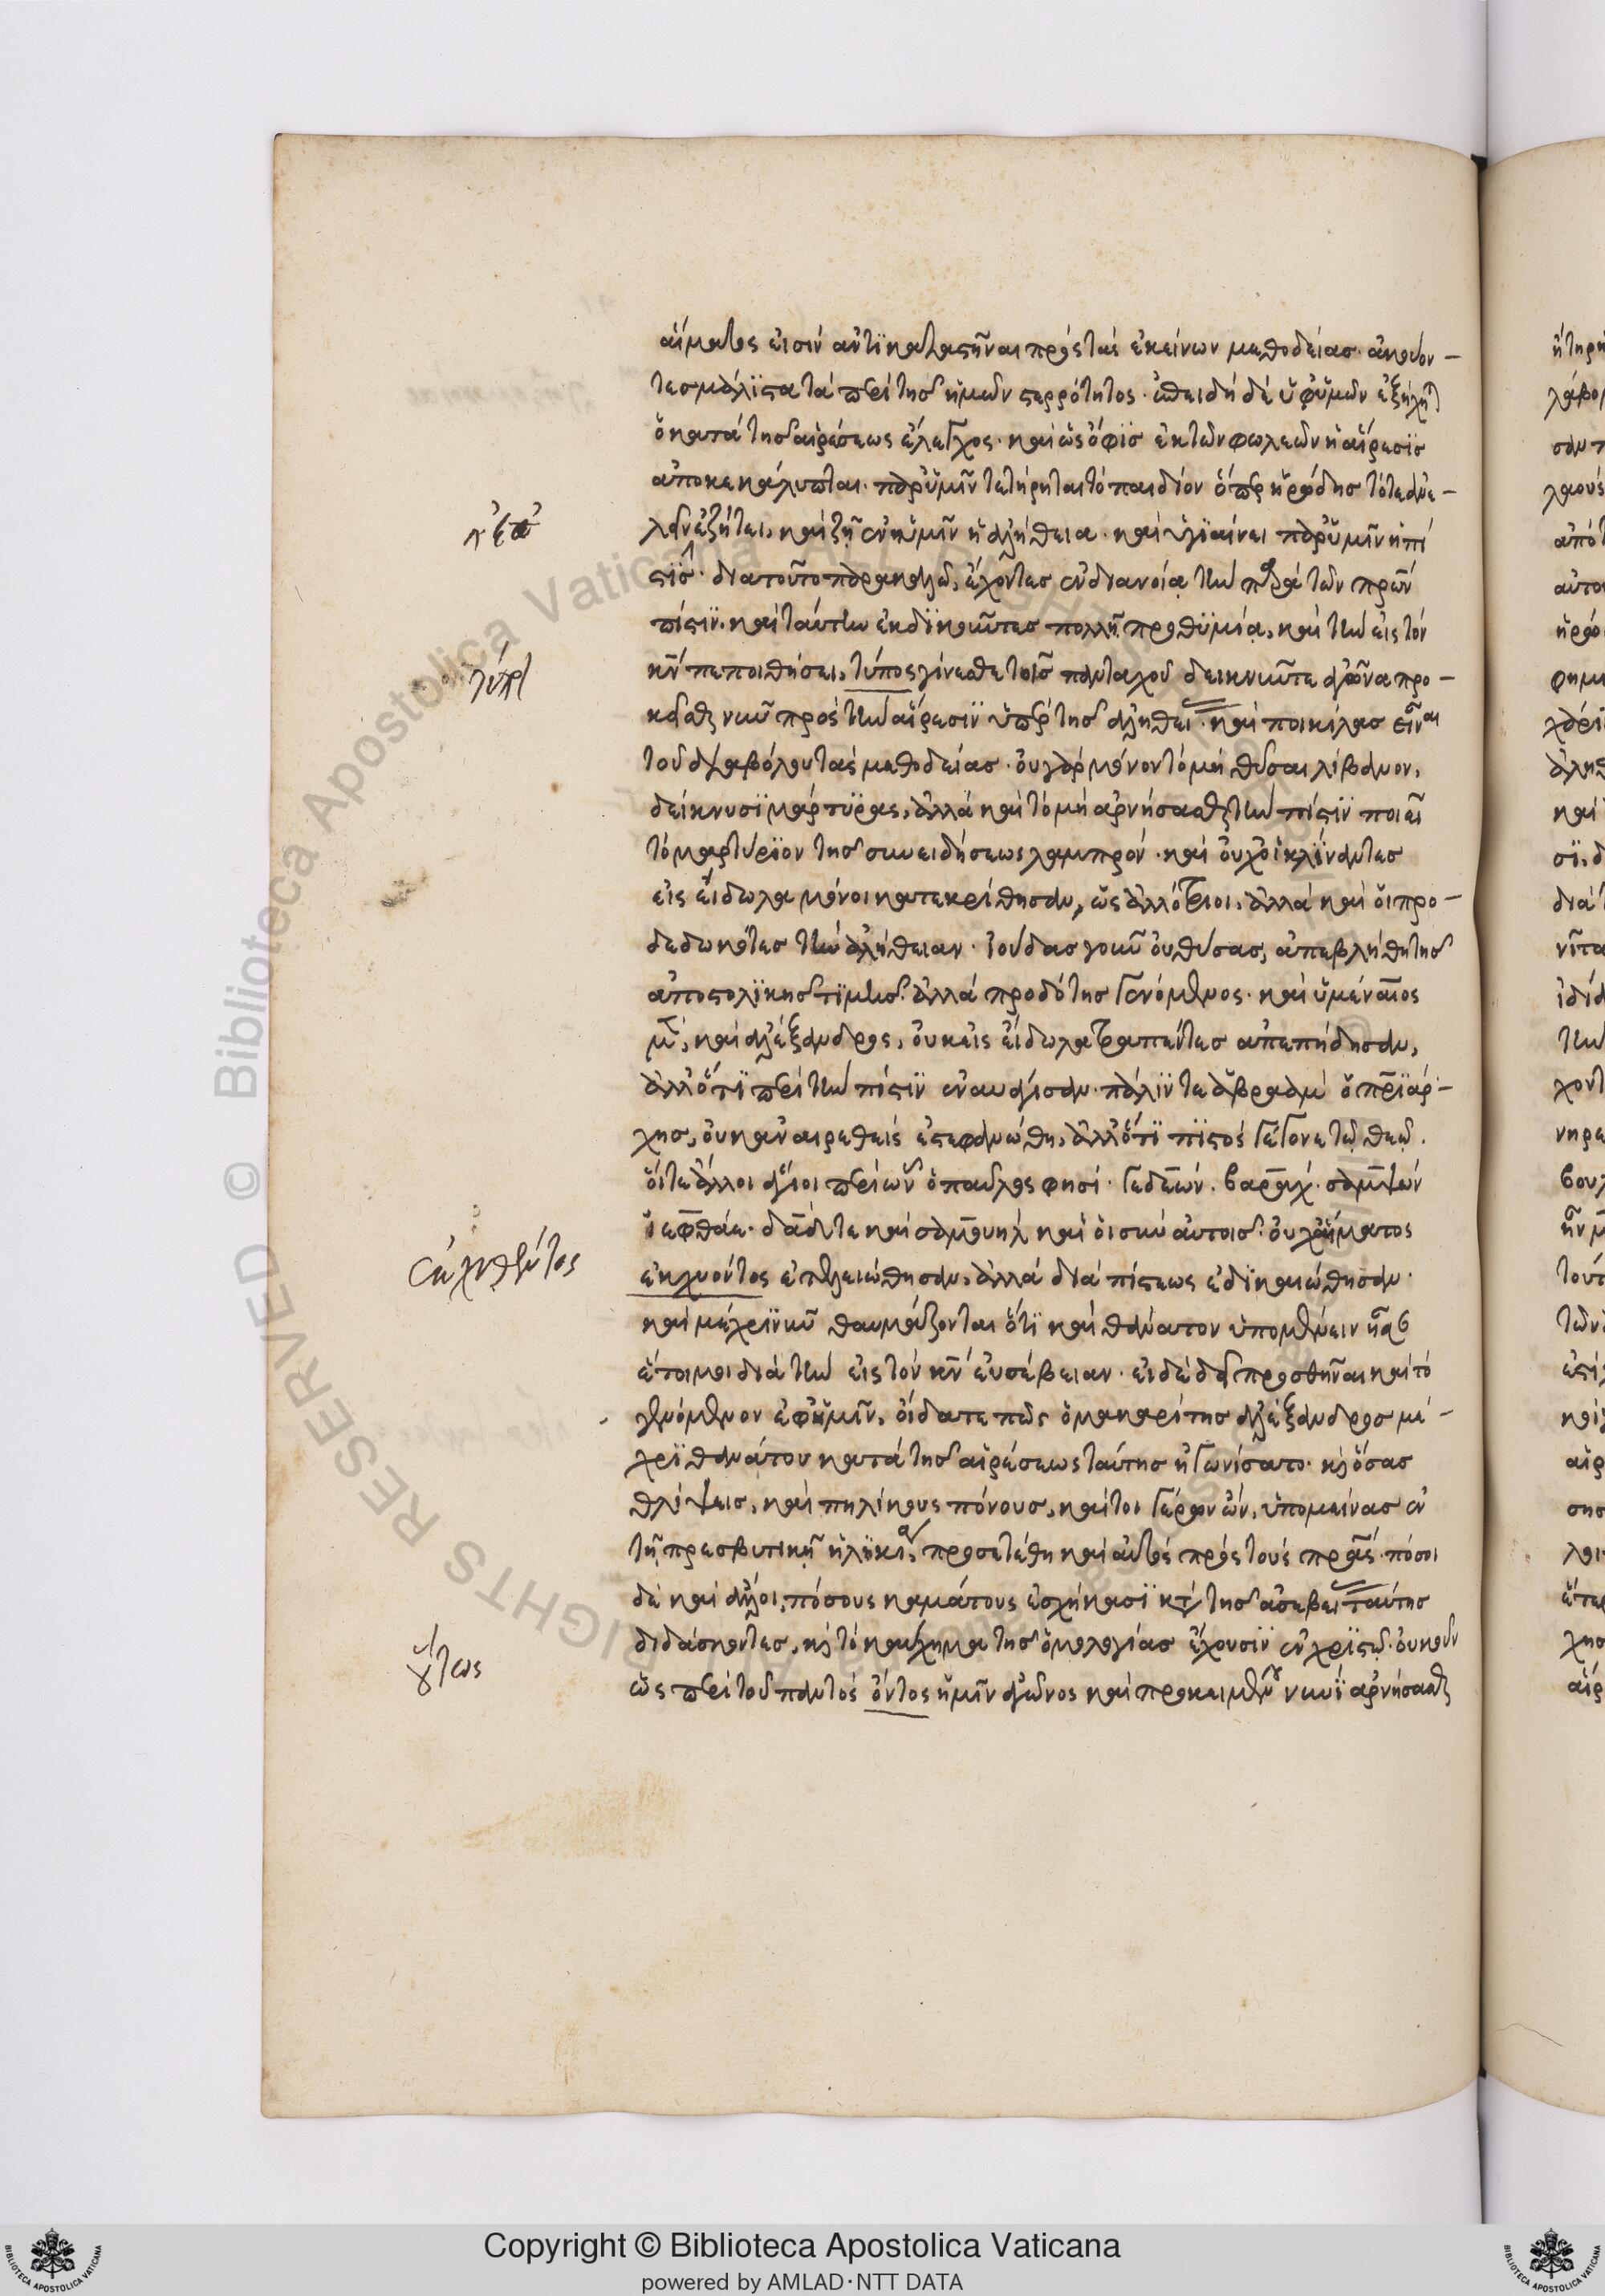 αἵματος εἰσὶν ἀντϊκαταστῆναι πρὸς τὰς ἐκείνων μεθοδείας· ἀκούον-
τες μάλϊστα τὰ περὶ τῆς ἡμῶν στερρότητος· ἐπειδὴ δὲ ὑφ' ὑμῶν ἐξήχθη
ὁ κατὰ τῆς αἱρέσεως ἔλεγχος· καὶ ὡς ὄφϊς ἐκ τῶν φωλεῶν ἡ αἵρεσϊς
ἀποκεκάλυπται· παρ' ὑμῖν τετήρηται τὸ παιδίον ὅπερ ἡρώδης τότε ἀνε-
λεῖν ἐζήτει, καὶ ζῇ ἐν ὑμῖν ἡ ἀλήθεια· καὶ ὑγϊαίνει παρ' ὑμῖν ἡ πί
στϊς· διὰ τοῦτο παρακαλῶ, ἔχοντες ἐν διανοίᾳ τὴν παρὰ τῶν πρων
πίστϊν· καὶ ταύτην ἐκδϊκοῦντες πολλῇ προθυμίᾳ, καὶ τὴν εἰς τὸν
κν πεποιθήσει, τύπος γίνεσθε τοῖς πανταχοῦ δεικνύντες ἀγῶνα προ-
κεῖσθαι νῦν πρὸς τὴν αἵρεσϊν ὑπὲρ τῆς ἀληθείας· καὶ ποικίλας εἶναι
τοῦ διαβόλου τὰς μεθοδείας· οὐ γὰρ μόνον τὸ μὴ θῦσαι λίβανον,
δείκνυσϊ μάρτυρας, ἀλλὰ καὶ τὸ μὴ ἀρνήσασθαι τὴν πίστϊν ποιεῖ
τὸ μαρτύρϊον τῆς συνειδήσεως λαμπρόν· καὶ οὐχ' οἱ κλΐναντες
εἰς εἴδωλα μόνοι κατεκρίθησαν, ὡς ἀλλότριοι, ἀλλὰ καὶ οἱ προ-
δεδωκότες τὴν ἀλήθειαν· Ἰούδας γοῦν οὐ θύσας, ἀπεβλήθη τῆς
ἀποστολϊκῆς τϊμῆς· ἀλλὰ προδότης γενόμενος· καὶ ὑμέναιος
μ, καὶ ἀλέξανδρος, οὐκ εἰς εἴδωλα τραπέντες ἀπεπήδησαν,
ἀλλ' ὅτϊ περὶ τὴν πίστϊν ἐναυάγισαν· πάλϊν τε ἀβραὰμ ὁ πρϊάρ-
χης, οὐκ ἀναιρεθεὶς ἐστεφανώθη, ἀλλ' ὅτϊ πϊστὸς γέγονε τῷ θεῷ.
οἵ τε ἄλλοι ἅγιοι περὶ ὧν ὁ παῦλος φησί· γεδεών. βαράχ· σαμψών
ϊεφθάε· δαδ τε καὶ σαμουὴλ καὶ οἱ σὺν αὐτοῖς· οὐχ' αἵματος
ἐκχυόντος ἐτελειώθησαν, ἀλλὰ διὰ πίστεως ἐδϊκαιώθησαν·
καὶ μέχρϊ νῦν θαυμάζονται ὅτϊ καὶ θάνατον ὑπομένειν ἦσαν
ἕτοιμοι διὰ τὴν εἰς τὸν κν εὐσέβειαν· εἰ δὲ δεῖ προσθῆναι καὶ τὸ
γενόμενον ἐφ' ὑμῖν, οἴδατε πῶς ὁ μακαρίτης ἀλέξανδρος μέ-
χρϊ θανάτου κατὰ τῆς αἱρέσεως ταύτης ἠγωνίσατο· κ ὅσας
θλίψεις, καὶ πηλίκους πόνους, καίτοι γέρων ὢν, ὑπομείνας ἐν
τῇ πρεσβυτικῇ ἡλϊκίᾳ, προσετέθη καὶ αὐτὸς πρὸς τοὺς πρας· πόσοι
δὲ καὶ ἄλλοι, πόσους καμάτους ἐσχήκασϊ κτ τῆς ἀσεβείας ταύτης
διδάσκοντες, κ τὸ καύχημα τῆς ὁμολογίας ἔχουσϊν ἐν χρϊστῷ· οὐκοῦν
ὡς περὶ τοῦ παντὸς ὄντος ἡμῖν ἀγῶνος καὶ προκειμένου νυνὶ ἀρνήσασθαι
τύποι
ἐκχυθέντος
οὕτως